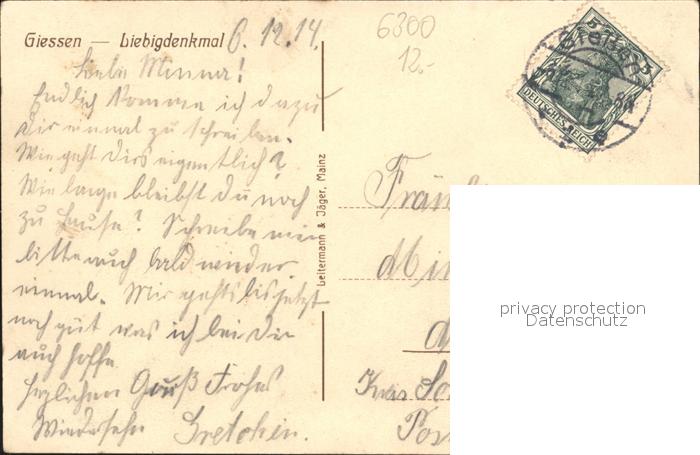 Giessen — Liebigdenkmal 6.12.14.
Liebe Minna!
Endlich komme ich dazu
Dir einmal zu schreiben.
Wie geht Dirs eigentlich?
Wie lange bleibst du noch
zu Hause? Schreibe mir
bitte auch bald wieder
einmal. Mir gehts bis jetzt
noch gut was ich bei Dir
auch hoffe
Herzlichen Gruß Frohes
Wiedersehn Gretchen.
Leitermann & Jäger, Mainz
6300
12.-
5 5
GIESSEN
DEUTSCHES REICH
Fräul
Min
Kreis
Pos
privacy protection
Datenschutz